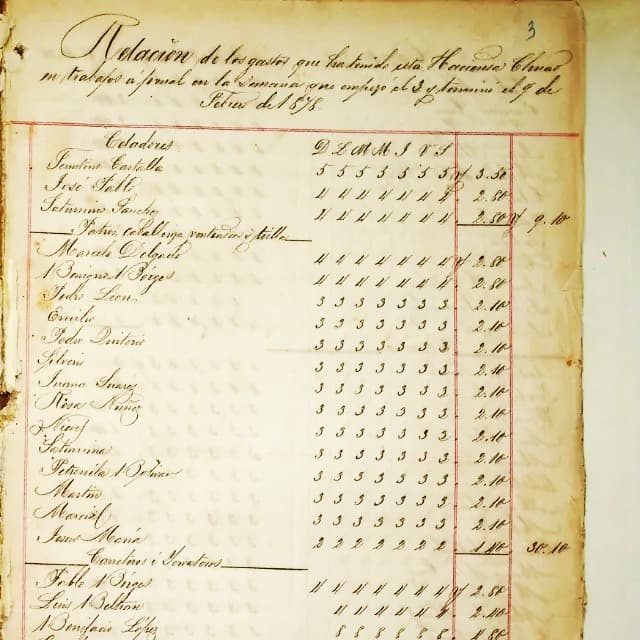 3
Relación de los gastos que ha tenido esta Hacienda
en trabajos a jornal en la semana que empezó el 3 y terminó el 9 de
Febrero de 1878.
Celadores D L M M J V S
Faustino Castilla 5 5 5 5 5 5 5 3.50
José Pablo 4 4 4 4 4 4 4 2.80
Saturnino Sanchez 4 4 4 4 4 4 4 2.80 9.10
Marcelo Delgado 4 4 4 4 4 4 4 2.80
Benigno 4 4 4 4 4 4 4 2.80
Pedro Leon 3 3 3 3 3 3 3 2.10
Emilio 3 3 3 3 3 3 3 2.10
Pedro 3 3 3 3 3 3 3 2.10
Silverio 3 3 3 3 3 3 3 2.10
Juana Suarez 3 3 3 3 3 3 3 2.10
Rosa Nuñez 3 3 3 3 3 3 3 2.10
3 3 3 3 3 3 3 2.10
Saturnina 3 3 3 3 3 3 3 2.10
Petronila Bolivar 3 3 3 3 3 3 3 2.10
Martin 3 3 3 3 3 3 3 2.10
Marcial 3 3 3 3 3 3 3 2.10
Jesus María 2 2 2 2 2 2 2 1.40 30.10
Pablo 4 4 4 4 4 4 4 2.80
Luis Beltran 4 4 4 4 4 4 2.40
Bonifacio López 4.80